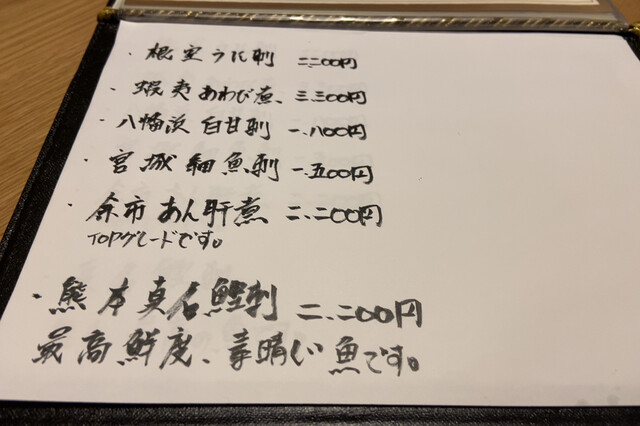 ・根室うに刺 二.二〇〇円
・蝦夷あわび煮、三.三〇〇円
・八幡浜 白甘刺 一.八〇〇円
・宮城 細魚刺 一.五〇〇円
・余市 あん肝煮 二.二〇〇円
TOPグレードです。
・熊本真名鰹刺 二.二〇〇円
最高鮮度、素晴しい魚です。